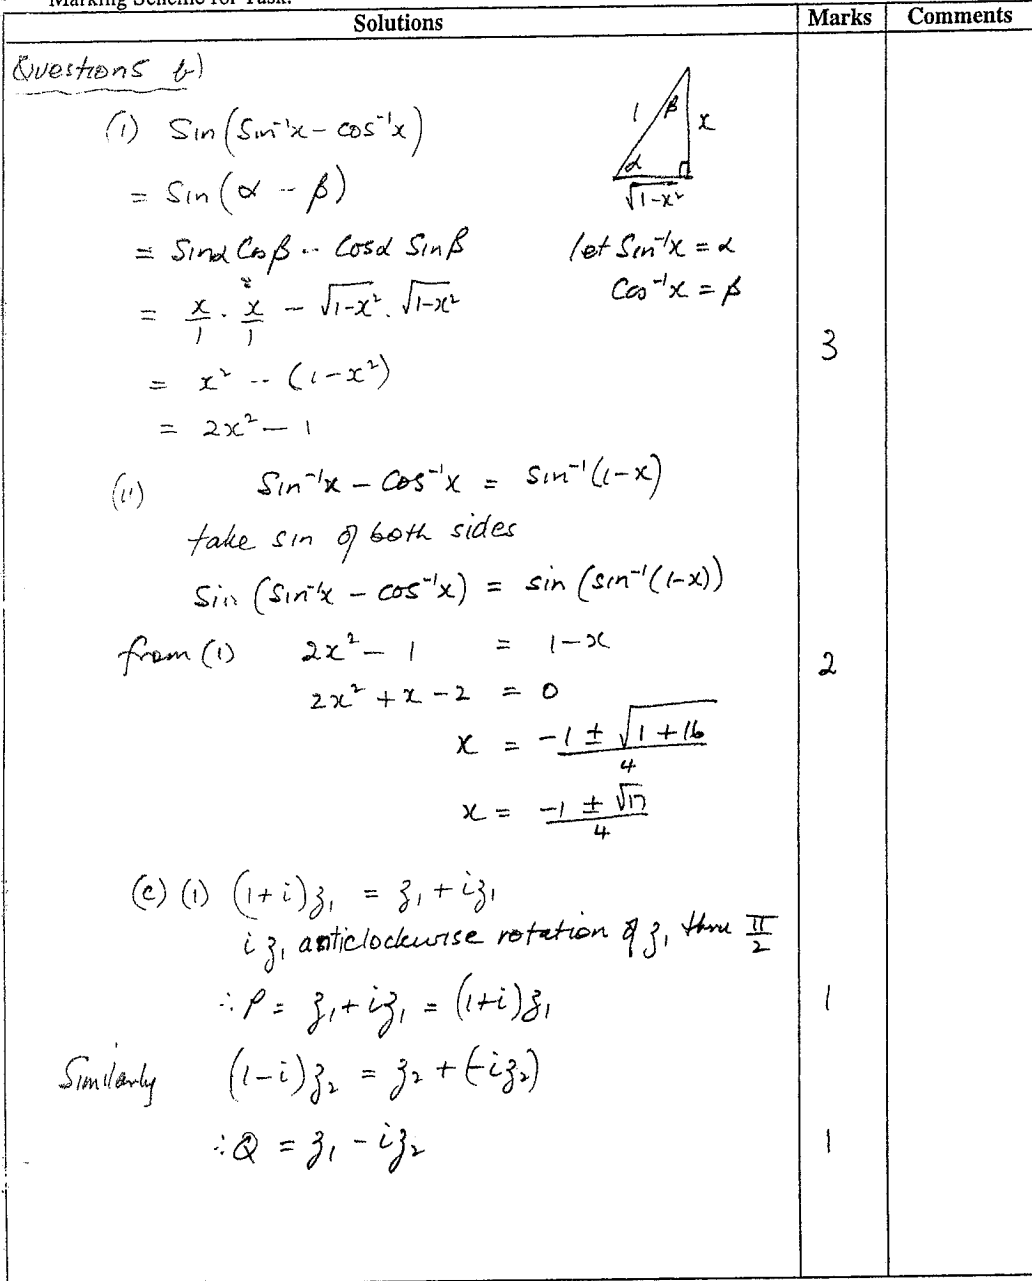 Marking Scheme for Task:
Solutions Marks Comments
Question 5 b)
(i) Sin(Sin⁻¹x - cos⁻¹x)
1 β x
α
√1-x²
= Sin(α - β)
= Sinα Cosβ - Cosα Sinβ
let Sin⁻¹x = α
Cos⁻¹x = β
= x/1 . x/1 - √1-x² . √1-x²
3
= x² - (1-x²)
= 2x² - 1
(ii) Sin⁻¹x - Cos⁻¹x = Sin⁻¹(1-x)
take sin of both sides
Sin (Sin⁻¹x - cos⁻¹x) = sin (sin⁻¹(1-x))
from (1) 2x² - 1 = 1-x
2
2x² + x - 2 = 0
x = -1 ± √1+16 / 4
x = -1 ± √17 / 4
(c) (1) (1+i)z₁ = z₁ + iz₁
iz₁ anticlockwise rotation of z₁ thru π/2
∴ P = z₁ + iz₁ = (1+i)z₁ 1
Similarly (1-i)z₂ = z₂ + (-iz₂)
∴ Q = z₁ - iz₂ 1